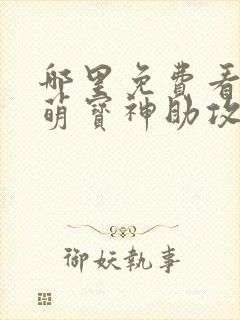 哪里免费看
萌寶神助攻
御妖執事